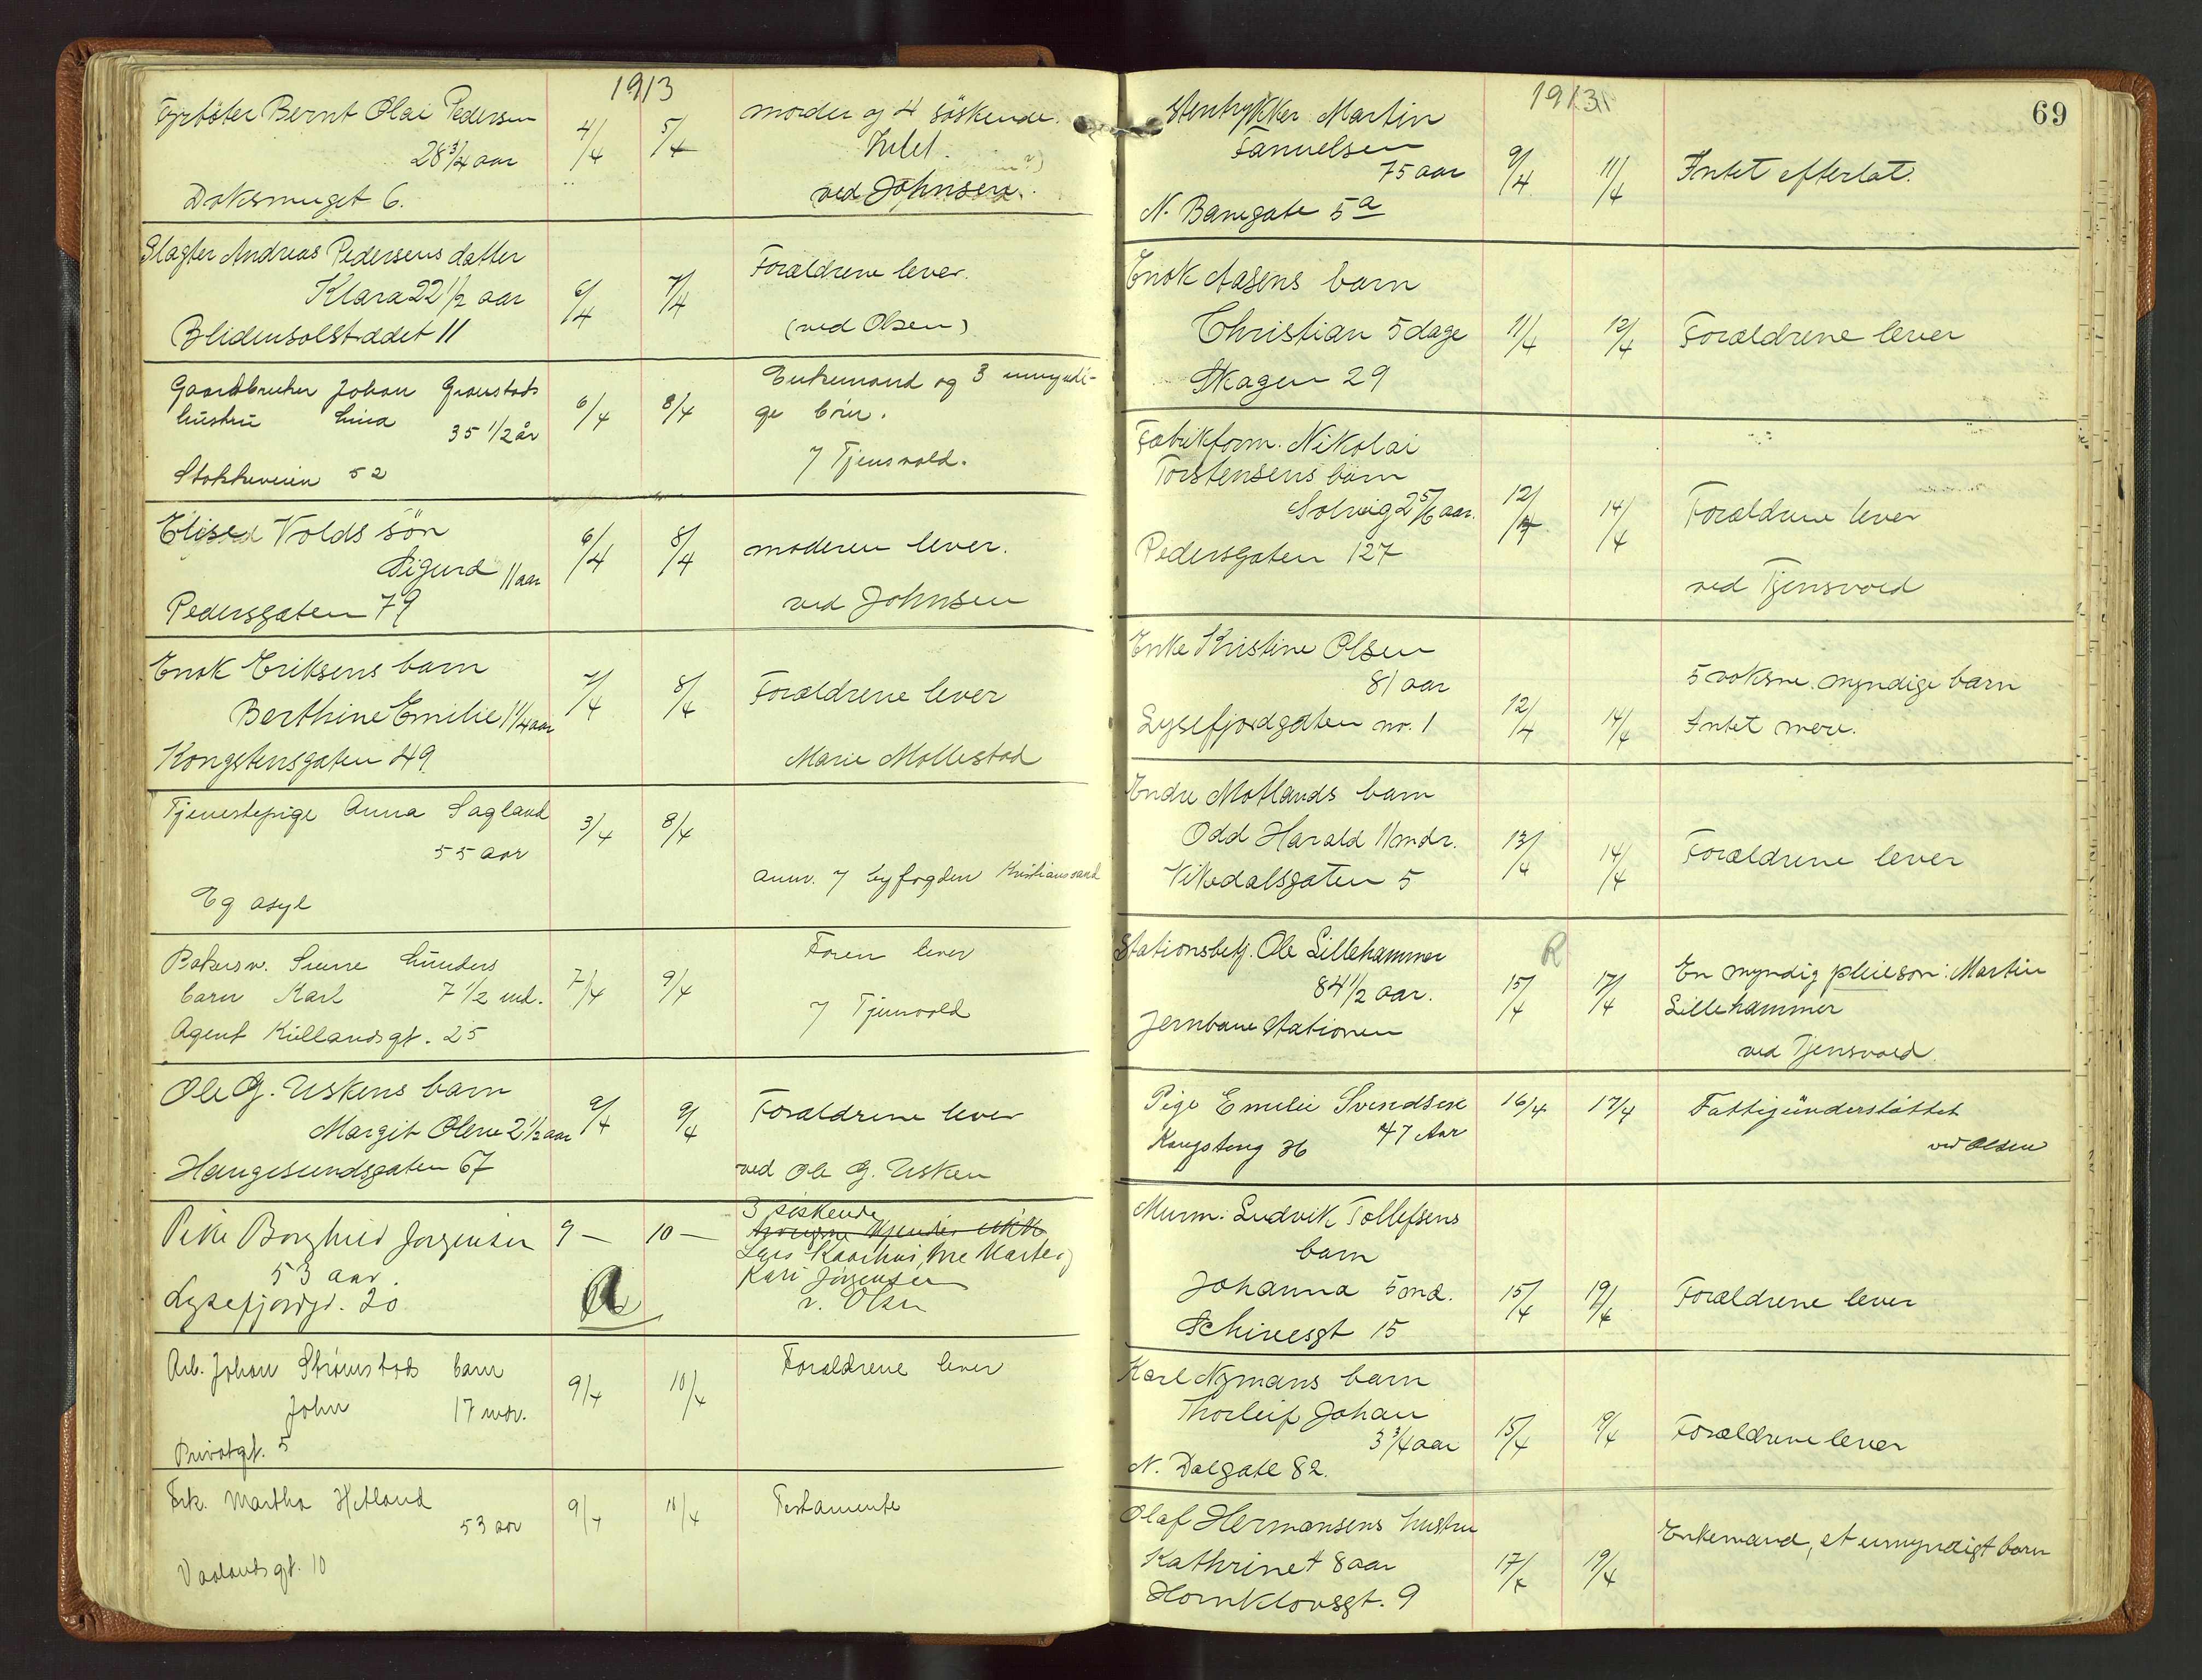 1913
Fyrbøter Bernt Olai Pedersen 4/4 5/4 moder og 4 søskende.
28 3/4 aar Intet.
Doksmuget 6. ved Johnsen.
Slagter Andreas Pedersens datter Forældrene lever.
Klara 22 1/2 aar 6/4 7/4
Blidensolstrædet 11 (ved Olsen)
Gaardbruker Johan Graustads Enkemand og 3 umyndi-
hustru Lina 35 1/2 år 6/4 8/4 ge børn.
Stokkeveien 52 v/ Tjensvold.
Elised Volds søn 6/4 8/4 moderen lever.
Sigurd 11 aar
Pedersgaten 79 ved Johnsen
Enok Eriksens barn 7/4 8/4 Forældrene lever
Berthine Emilie 1 1/4 aar
Kongstensgaten 49. Marie Mollestad
Tjenestepige Anna Sagland 3/4 8/4
55 aar
anm. v/ byfogden Kristianssand
Eg asyl
Bakersv. Sunne Lunders Faren lever
barn Karl 7 1/2 md. 7/4 9/4
Agent Kiellandsgt. 25 v/ Tjensvold
Ole G. Uskens barn 9/4 9/4 Forældrene lever
Margit Olene 2 1/2 aar
Haugesundsgaten 67 ved Ole G. Usken
3 søskende
Pike Borghild Jørgensen 9 — 10 —
Lars Kaarhus, Kari Jørgensen
53 aar. v. Olsen
Lysefjordgt. 20
Arb. Johan Strømstads barn 9/4 10/4 Forældrene lever
John 17 mdr.
Privatgt. 5
Frk. Martha Hetland 9/4 11/4 Testamente
53 aar
Vaalandsgt. 10
69
1913
Stentrykker Martin
Samuelsen 9/4 11/4 Intet efterlat.
75 aar
N. Banegate 5 a
Enok Aasens barn
Christian 5 dage 11/4 12/4 Forældrene lever
Skagen 29
Fabrikform. Nikolai
Torstensens barn
Solveig 2 5/6 aar. 12/4 14/4 Forældrene lever
Pedersgaten 127
ved Tjensvold
Enke Kristine Olsen
81 aar 5 voksne myndige barn
Lysefjordgaten nr. 1 12/4 14/4 Intet mere.
Endre Motlands barn
Odd Harald 11 mdr. 13/4 14/4 Forældrene lever
Vikedalsgaten 5
R
Stationsbetj. Ole Lillehammer En myndig pleiesøn: Martin
84 1/2 aar. 15/4 17/4 Lillehammer
Jernbane Stationen ved Tjensvold
Pige Emelie Svendsen 16/4 17/4 Fattigunderstøttet
Kongsteng 36 47 Aar ved Olsen
Murm. Ludvik Tollefsens
barn
Johanna 5 md. 15/4 19/4 Forældrene lever
Schivesgt 15
Karl Nymans barn
Thorleif Johan 15/4 9/4 Forældrene lever
3 3/4 aar
N. Dalgate 82.
Olaf Hermansens hustru Enkemand, et umyndigt barn
Kathrine 48 aar 17/4 19/4
Hornklovsgt. 9